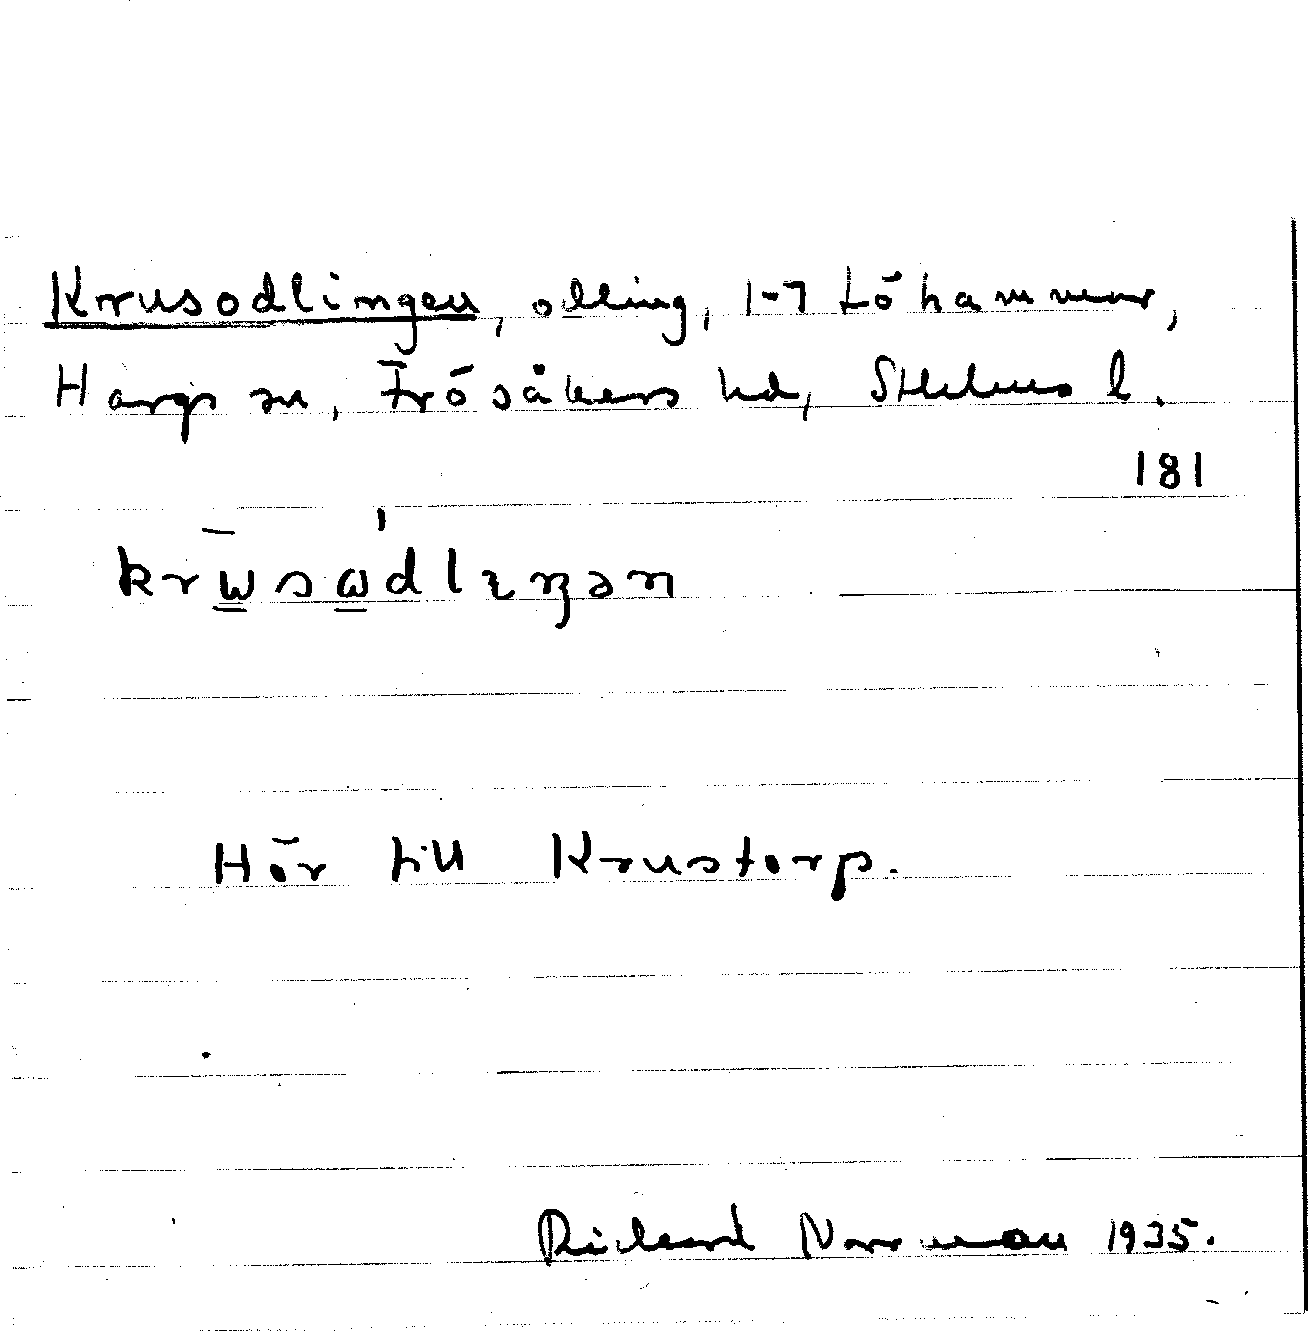 Krusodlingen, odling, 1-7 Löhammar,
Hargs sn, Frösåkers hd, Sthlms l.
181
krω̲̄sω̲̍dlɩŋən
Hör till Krustorp.
Rickard Norrman 1935.